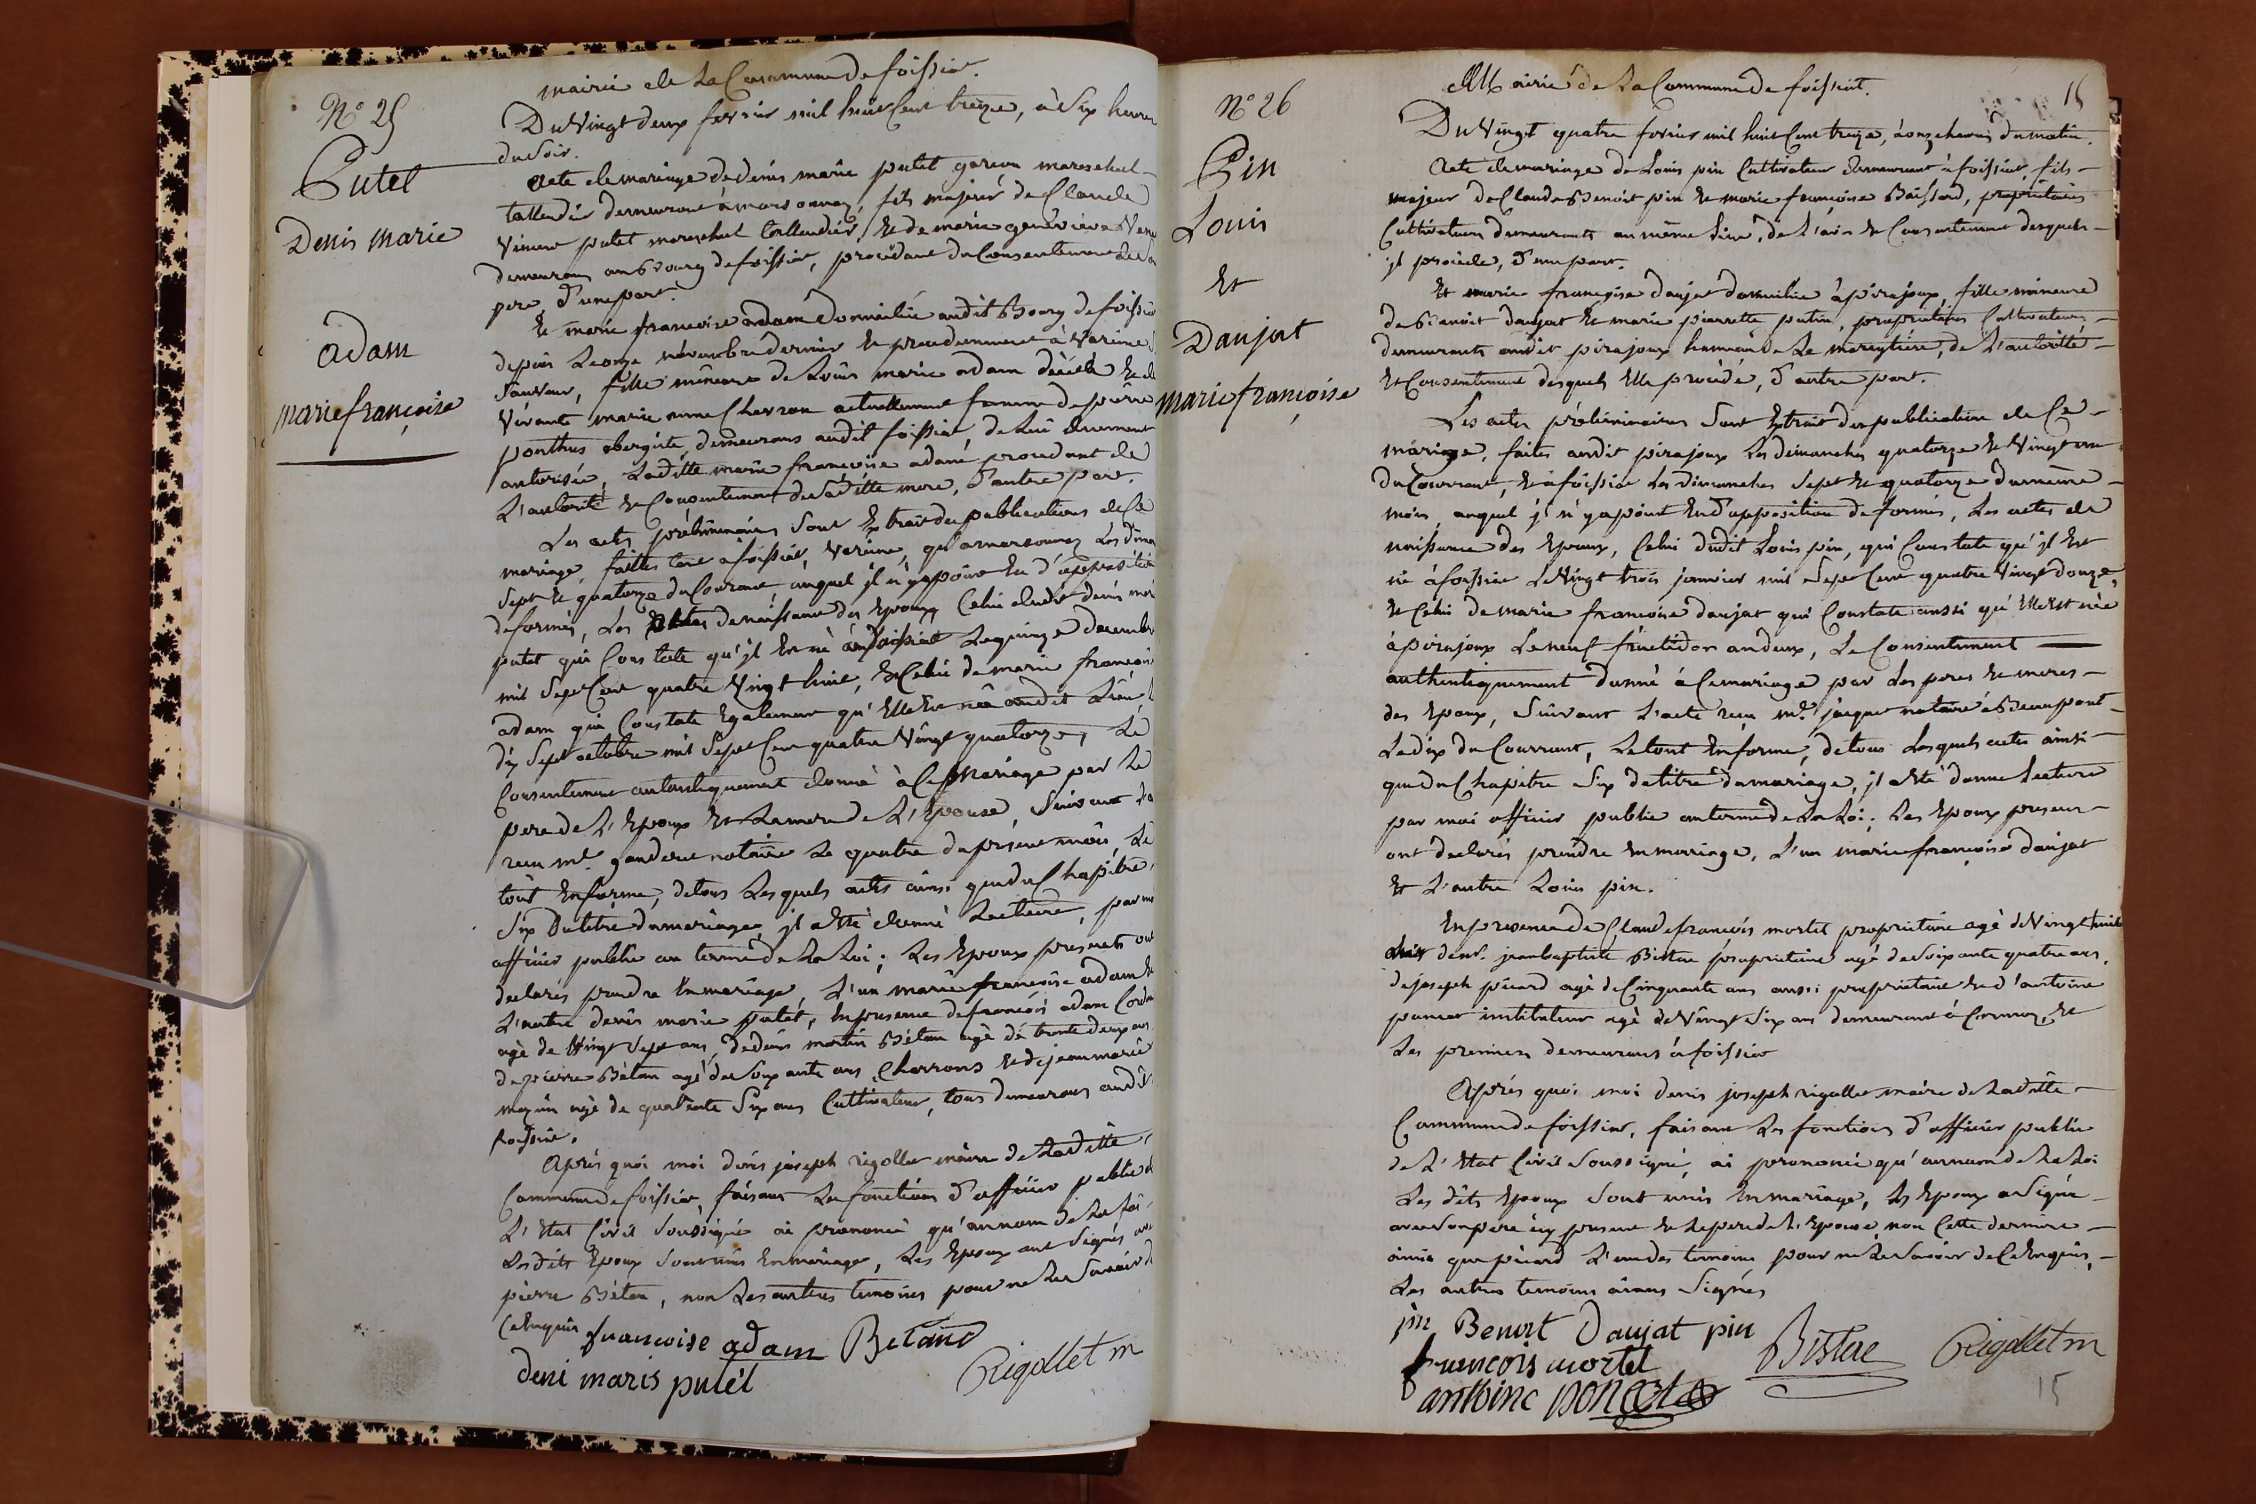 mairie de La Commune de foissiat.
N° 25
Du Vingt deux fevrier mil huit Cent treize, à Six heures
du Soir.
Putet
Denis Marie
Adam
marie françoise
acte de mariage de denis marie putet garcon mareschal
taillendier demeurant à marsonnaz, fils majeur de Claude
Vincent putet mareschal taillendier, et de marie genevieve
demeurans au bourg de foissiat, procédant du Consentement de Son
pere, d'une part.
Et marie francoise adam domiciliée audit Bourg de foissiat
depuis Le onze novembre dernier et precedemment à Varenne
Sauveur, fille mineure de Louis marie adam décédé et de
Vivante marie anne Chevron actuellement femme de pierre
ponthus obergiste demeurans audit foissiat, de Lui duement
autorisée, Laditte marie francoise adam procedant de
L'autorité et Consentement de Saditte mere, d'autre part.
Les actes préliminaires Sont Extrait des publications de Ce
mariage, faittes tant à foissiat, Varenne, qu'à marsonnaz Les diman
Sept et quatorze du Courant, auquel il n'y a point Eu d'opposition
de formés, Les actes de naissance des Epoux, Celui dudit denis marie
putet qui Constate qu'il Est né à foissiat Le quinze decembre
mil Sept Cent quatre Vingt huit, et Celui de marie françoise
adam qui Constate Egalement qu'Elle Est née audit Lieu Le
dix Sept octobre mil Sept Cent quatre Vingt quatorze, Le
Consentement autantiquement donné à Ce Mariage par Le
pere de L'Epoux et La mere de L'Epouse, Suivant L'a
reçu me. notaire Le quatre du présent mois, Le
tout En forme, de tous Lesquels actes ainsi que du Chapitre
Six Du titre du mariage, il a Eté donné Lecture, par moi
officier public au terme de La Loi; Les Epoux presents ont
declarés prendre En mariage, L'un marie francoise adam Et
L'autre denis marie putet, En presence de francois adam
agé de Vingt Sept ans, de denis martin Bétan agé de trente deux ans
de pierre Bétan agé de Soixante ans, Charrons et de jean marie
agé de quarante Six ans Cultivateur, tous demeurans audit
foissiat.
Après quoi moi denis joseph rigollet maire de Laditte
Commune de foissiat, faisant Les fonctions d'officier public de
L'Etat Civil Soussigné ai prononcé qu'au nom de La Loi
Lesdits Epoux Sont unis En mariage, Les Epoux ont Signés avec
pierre Bétan, non Les autres temoins pour ne Le Savoir de
Ce Enquis
francoise adam Betand
deni maris putet
Rigollet m
Mairie de La Commune de foissiat.
15
N° 26
Pin
Louis
Et
Daujat
Marie françoise
Du Vingt quatre fevrier mil huit Cent treize, à onze heures du matin.
Acte de mariage de Louis pin Cultivateur demeurant à foissiat, fils
majeur de Claude Benoit pin et marie françoise Boissard, proprietaires
Cultivateurs demeurants au même Lieu, de L'avis et Consentement desquels
il procède, d'une part.
Et marie françoise daujat domiciliée à pirajoux, fille mineure
de Benoit daujat et marie pierrette putin, proprietaires Cultivateurs
demeurants audit pirajoux hameau de La, de L'autorité
et Consentement desquels Elle procéde, d'autre part.
Les actes préliminaires Sont Extrait des publication de Ce
mariage, faites audit pirajoux Les dimanches quatorze et Vingt un
du Courrant, et à foissiat Les dimanches Sept et quatorze du même
mois, auquel il n'y a point Eu d'opposition de formés, Les actes de
naissance des Epoux, Celui dudit Louis pin, qui Constate qu'il Est
né à foissiat Le Vingt trois janvier mil Sept Cent quatre Vingt douze,
Et Celui de marie francoise daujat qui Constate aussi qu'Elle Est née
à pirajoux Le neuf fructidor an deux, Le Consentement
authentiquement donné à Ce mariage par Les peres et meres
des Epoux, Suivant L'acte reçu me. jaquet notaire à Beaupont
Le dix du Courrant, Le tout En forme, de tous Lesquels actes ainsi
que du Chapitre Six du titre du mariage, il a Eté donné Lecture
par moi officier public au terme de La Loi; Les Epoux presens
ont declarés prendre En mariage, L'un marie françoise daujat
et L'autre Louis pin.
En presence de Claude francois mortel proprietaire agé de Vingt huit
de Sr. jean baptiste Bistac proprietaire agé de Soixante quatre ans,
de joseph picard agé de Cinquante ans aussi proprietaire et d'antoine
poncet instituteur agé de Vingt Six ans demeurant à Cormoz, et
Les premiers demeurans à foissiat
Après quoi moi denis joseph rigollet maire de Laditte
Commune de foissiat, faisant Les fonctions d'officier public
de L'Etat Civil Soussigné, ai prononcé qu'au nom de La Loi
Les dits Epoux Sont unis En mariage, Les Epoux a Signé
avec Son pere ici present et Le pere de L'Epouse, non Cette derniere
ainsi que picard L'un des temoins pour ne Le Savoir de Ce Enquis,
Les autres temoins aians Signés
pin Benoit Daujat pin
francois mortel
Bistac
Rigollet m
antoine poncet
15